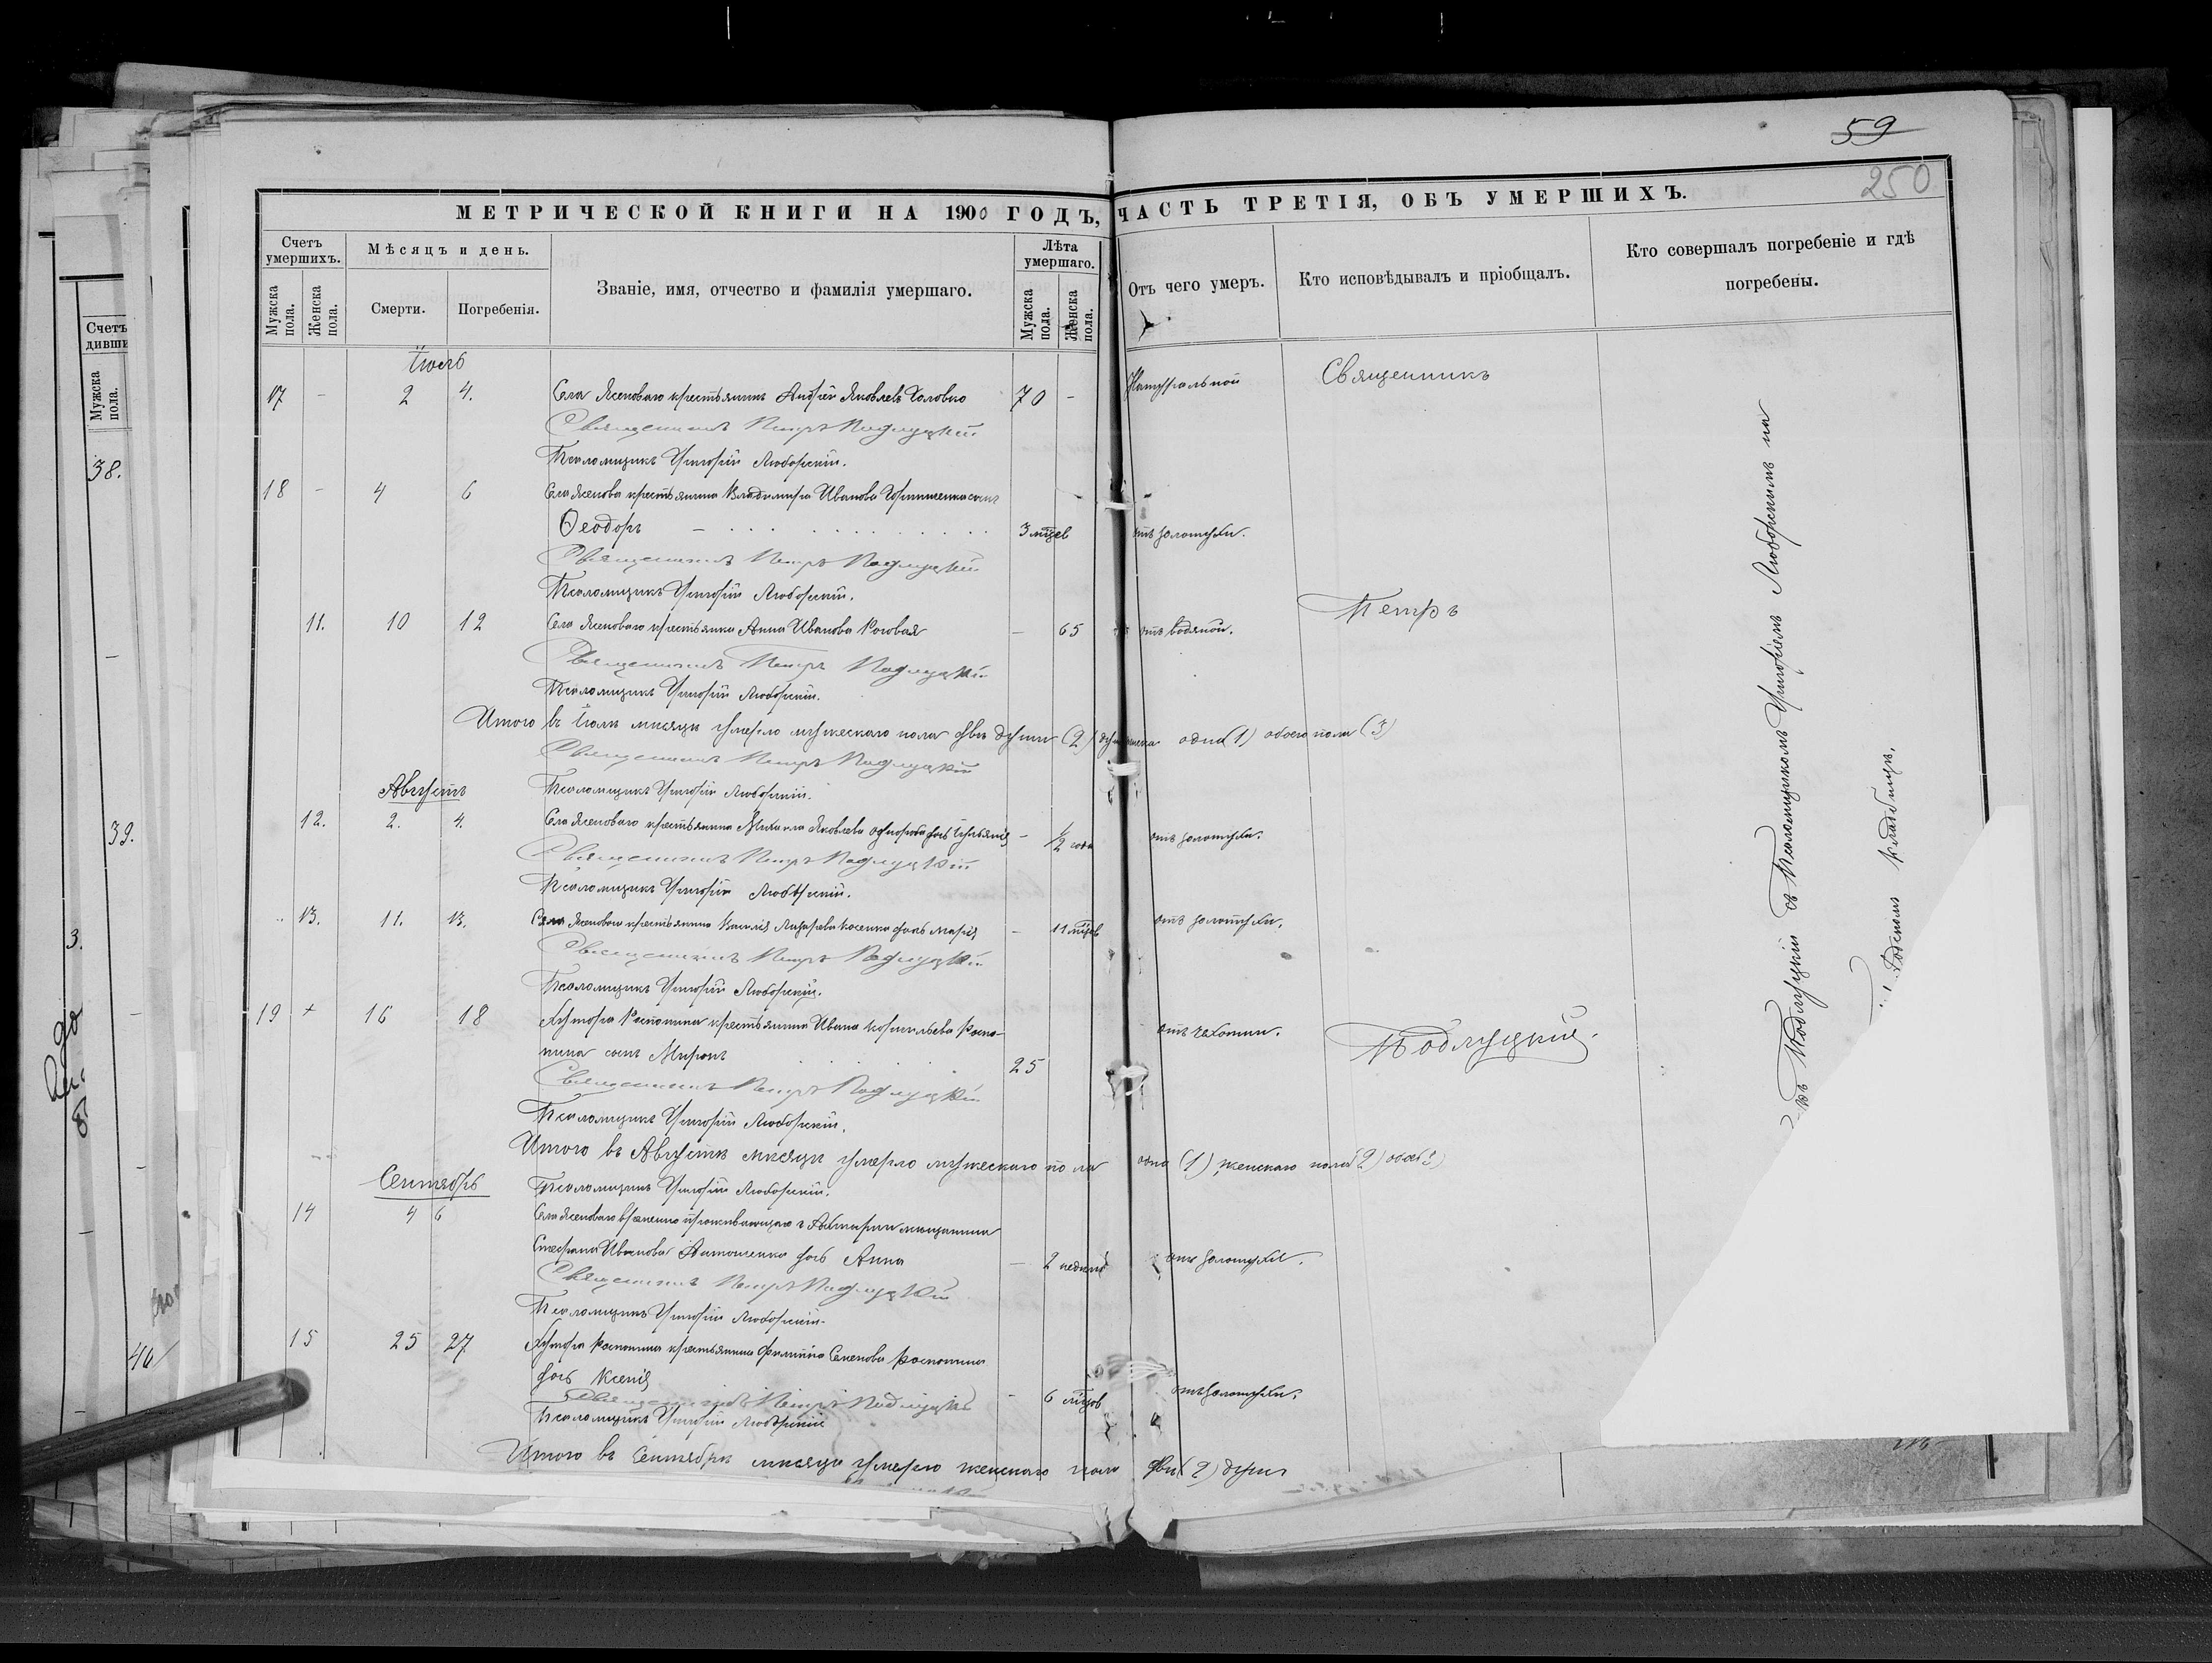 59
250
МЕТРИЧЕСКОЙ КНИГИ НА 1900 ГОДЪ, ЧАСТЬ ТРЕТІЯ, ОБЪ УМЕРШИХЪ.
Счетъ умершихъ.
Мужска пола.
Женска пола.
Мѣсяцъ и день.
Смерти.
Погребенія.
Званіе, имя, отчество и фамилія умершаго.
Лѣта умершаго.
Мужска пола.
Женска пола.
Отъ чего умеръ.
Кто исповѣдывалъ и пріобщалъ.
Кто совершалъ погребеніе и гдѣ погребены.
Іюль
17 - 2 4. Села Ясеноваго крестьянинъ Андрей Яковлевъ Головко 70 - Натуральной
Священникъ Петръ Подлуцкій
Псаломщикъ Григорій Люборскій.
18 - 4 6 Села Ясенова крестьянина Владимира Иванова сынъ
Ѳеодоръ 3 мѣсв отъ золотухи.
Священникъ Петръ Подлуцкій
Псаломщикъ Григорій Люборскій.
11. 10 12 Села Ясеноваго крестьянка Анна Иванова Роговая - 65 отъ водяной.
Священникъ Петръ Подлуцкій
Псаломщикъ Григорій Люборскій.
Итого въ Іюлѣ мѣсяцѣ умерло мужескаго пола двѣ души (2) одна (1) обоего пола (3)
Священникъ Петръ Подлуцкій
Августъ
Псаломщикъ Григорій Люборскій.
12. 2. 4. Села Ясеноваго крестьянина Михаила Яковлева дочь - 1/2 года отъ золотухи.
Священникъ Петръ Подлуцкій
Псаломщикъ Григорій Люборскій.
13. 11. 13. Села Ясеноваго крестьянина Василія Лазарева Косенко дочь Марія - 11 мѣсв отъ золотухи.
Священникъ Петръ Подлуцкій
Псаломщикъ Григорій Люборскій.
19 + 16 18 Хутора Распопина крестьянина Ивана Корнильева Распо-
пина сынъ Миронъ 25 отъ чахотки.
Священникъ Петръ Подлуцкій
Псаломщикъ Григорій Люборскій.
Итого въ Августѣ мѣсяцѣ умерло мужескаго пола одна (1) женскаго пола (2)
Сентябрь
Псаломщикъ Григорій Люборскій.
14 4 6 Села Ясеноваго временно проживающаго мѣщанина
Стефана Иванова Антоненко дочь Анна - 2 недѣли отъ золотухи.
Священникъ Петръ Подлуцкій
Псаломщикъ Григорій Люборскій.
15 25 27 Хутора Распопина крестьянина Филиппа Семенова Распопина
дочь Ксенія - 6 мѣсв отъ золотухи.
Священникъ Петръ Подлуцкій
Псаломщикъ Григорій Люборскій
Итого въ Сентябрѣ мѣсяцѣ умерло женскаго пола двѣ (2) души
Священникъ
Петръ
Подлуцкій.
Подлуцкій съ Псаломщикомъ Григоріемъ Люборскимъ на
кладбищѣ.
Счетъ
Мужска пола.
38.
39.
3.
40